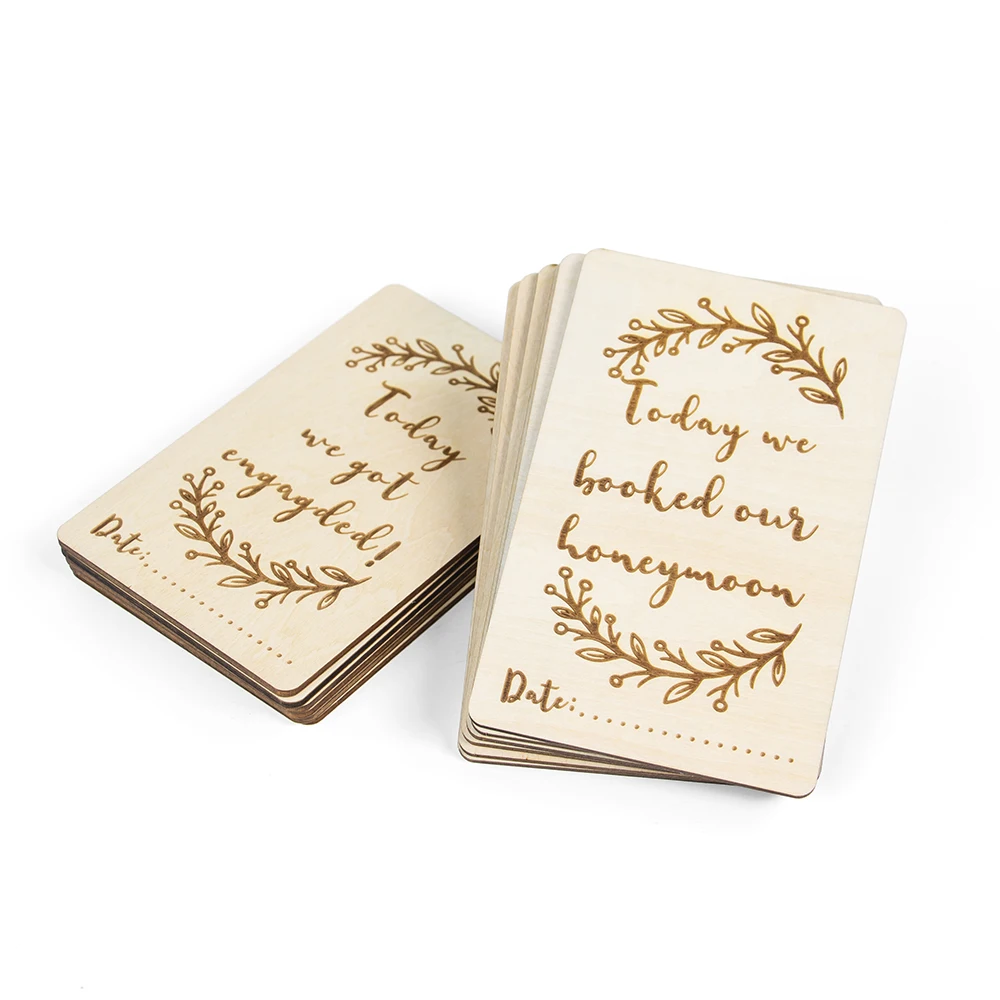 Today
we got
engagded!
Date:.................
Today we
booked our
honeymoon
Date:.................